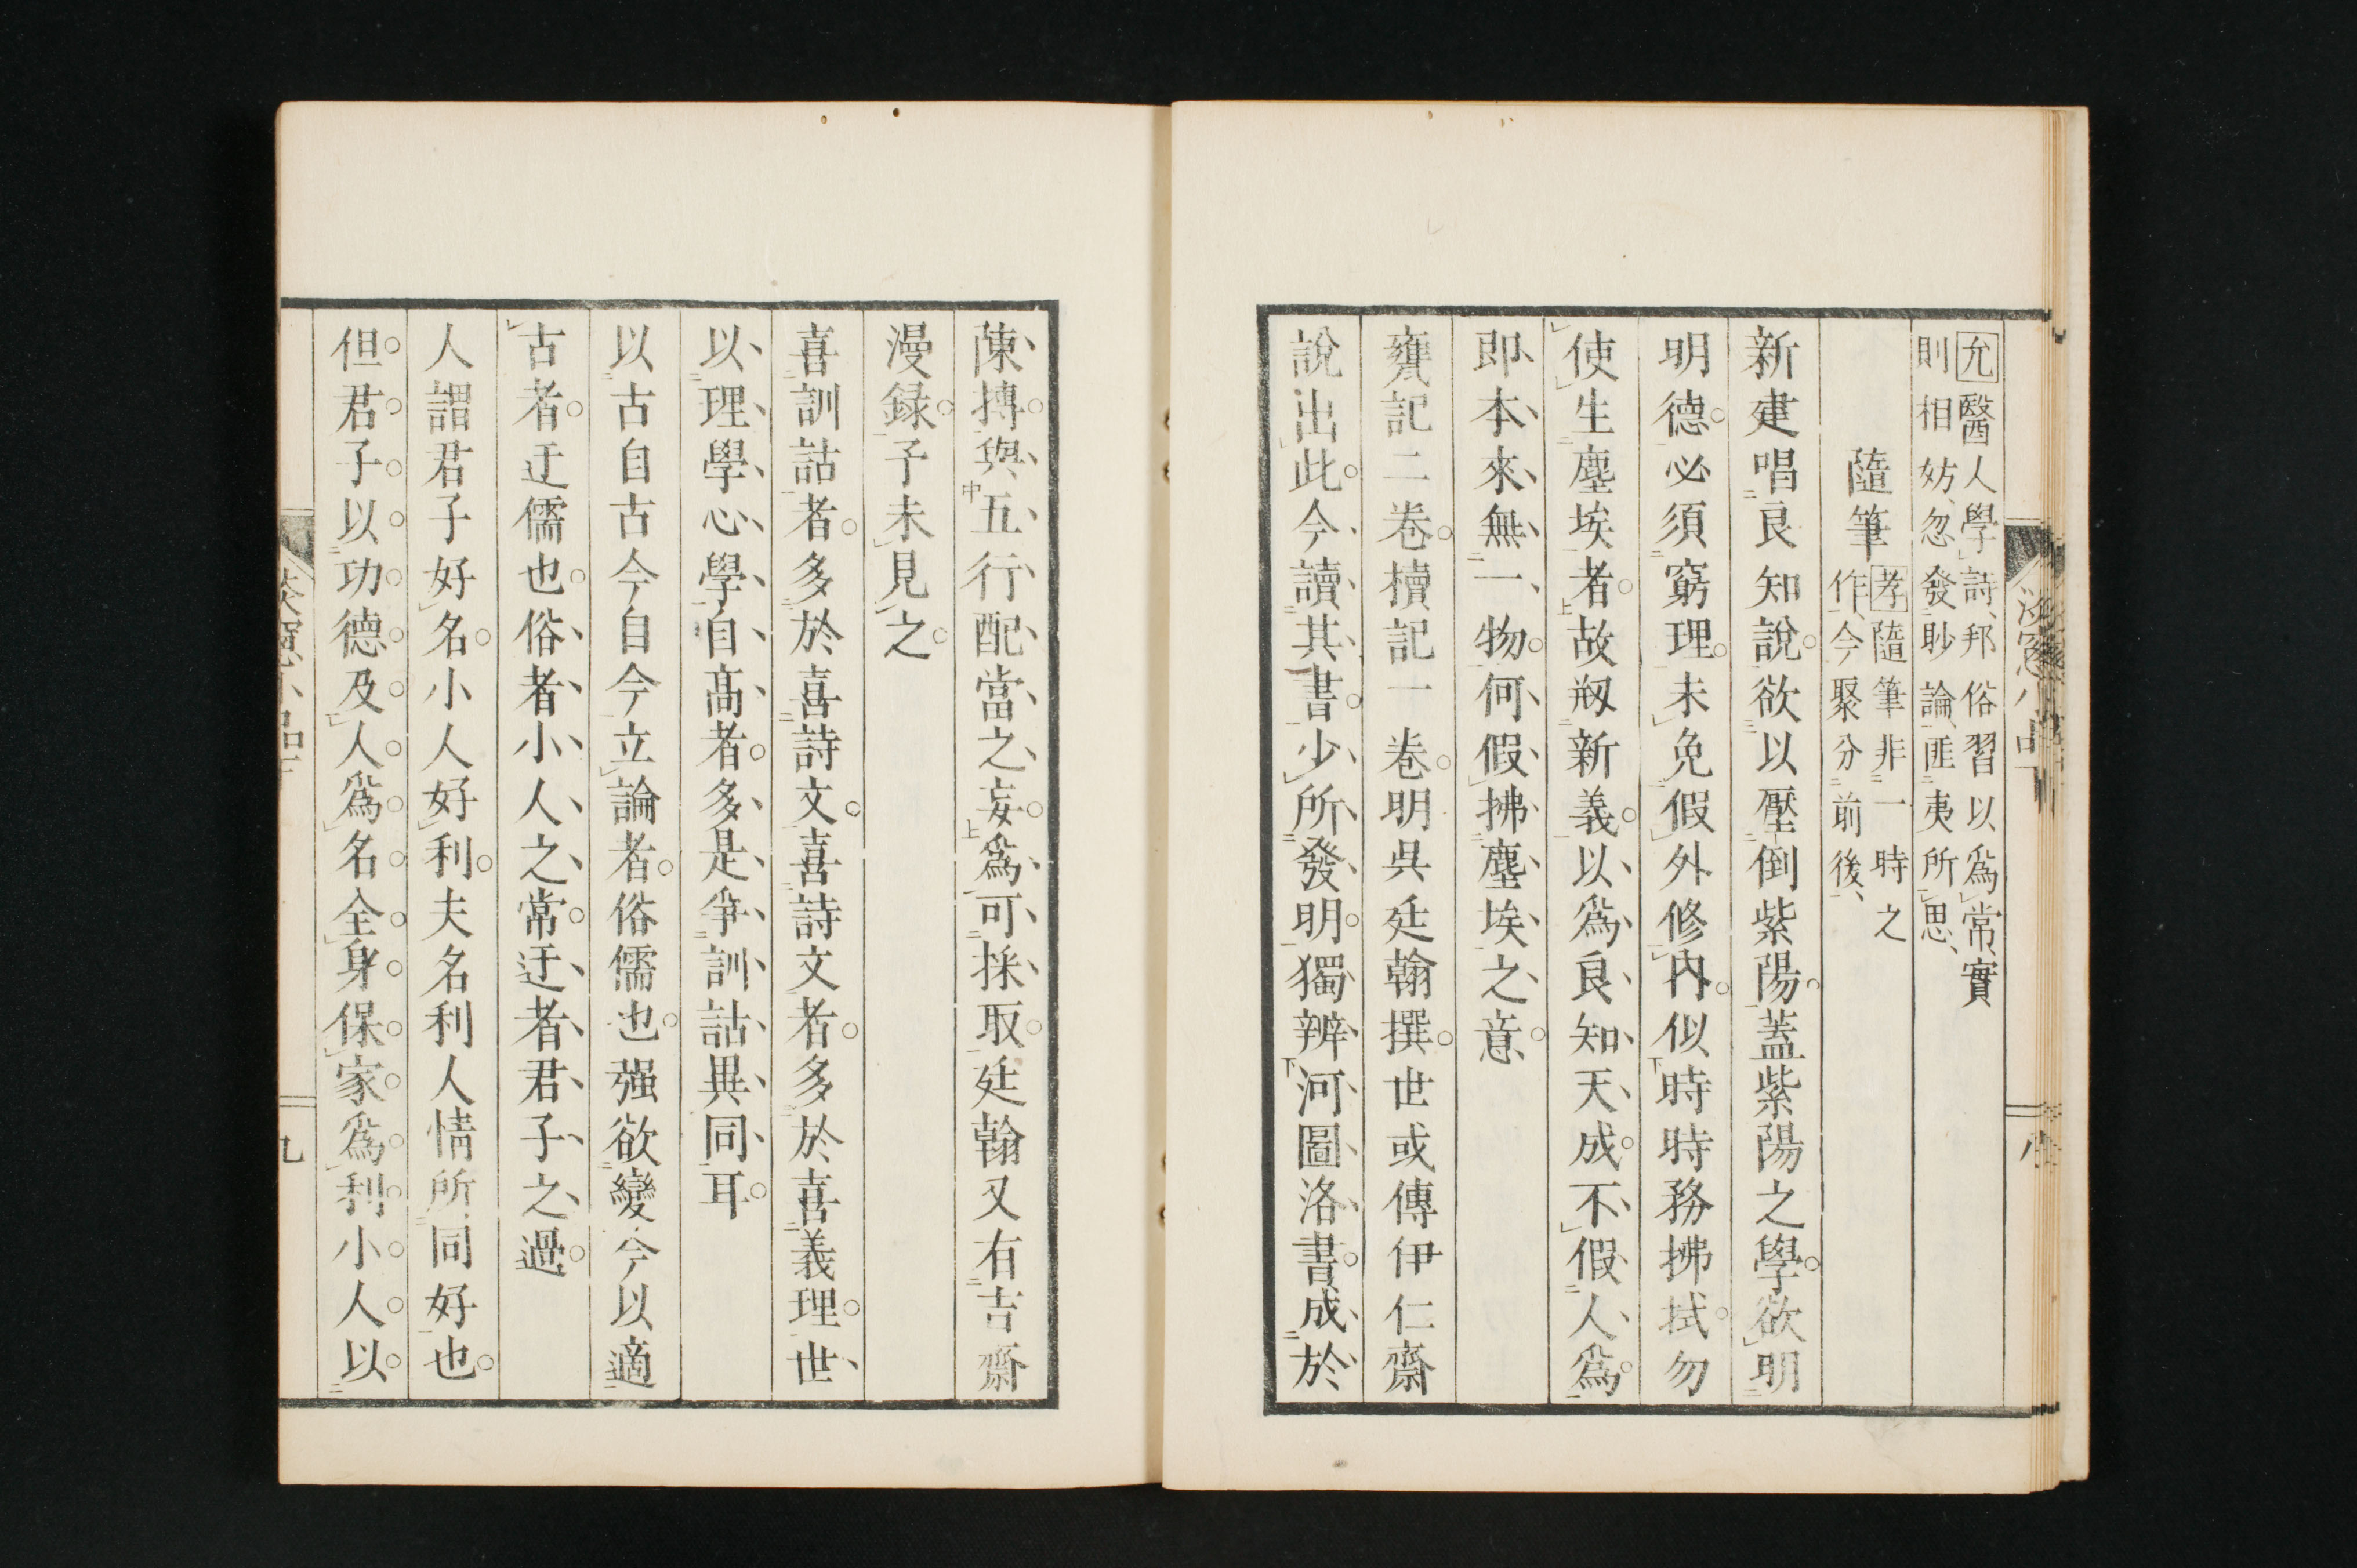 允醫人學詩、邦俗習以爲常、實
則相妨、忽發眇論、匪夷所思、
隨筆
孝隨筆非一時之
作、今聚分前後、
新建唱良知說。欲以壓倒紫陽。蓋紫陽之學。欲明
明德。必須窮理。未免假外修内。似時時務拂拭。勿
使生塵埃者。故刱新義。以爲良知天成。不假人爲。
即本來無一物。何假拂塵埃之意。
甕記二卷。櫝記一卷。明吳廷翰撰。世或傳伊仁齋
說出此。今讀其書。少所發明。獨辨河圖洛書。成於
陳摶。與五行配當之妄。爲可採取。廷翰又有吉齋
漫録。予未見之。
喜訓詁者。多於喜詩文。喜詩文者。多於喜義理。世
以理學心學自高者。多是爭訓詁異同耳。
以古自古今自今立論者。俗儒也。强欲變今以適
古者。迂儒也。俗者小人之常。迂者君子之過。
人謂君子好名。小人好利。夫名利人情所同好也。
但君子以功德及人爲名。全身保家爲利。小人以
九
八